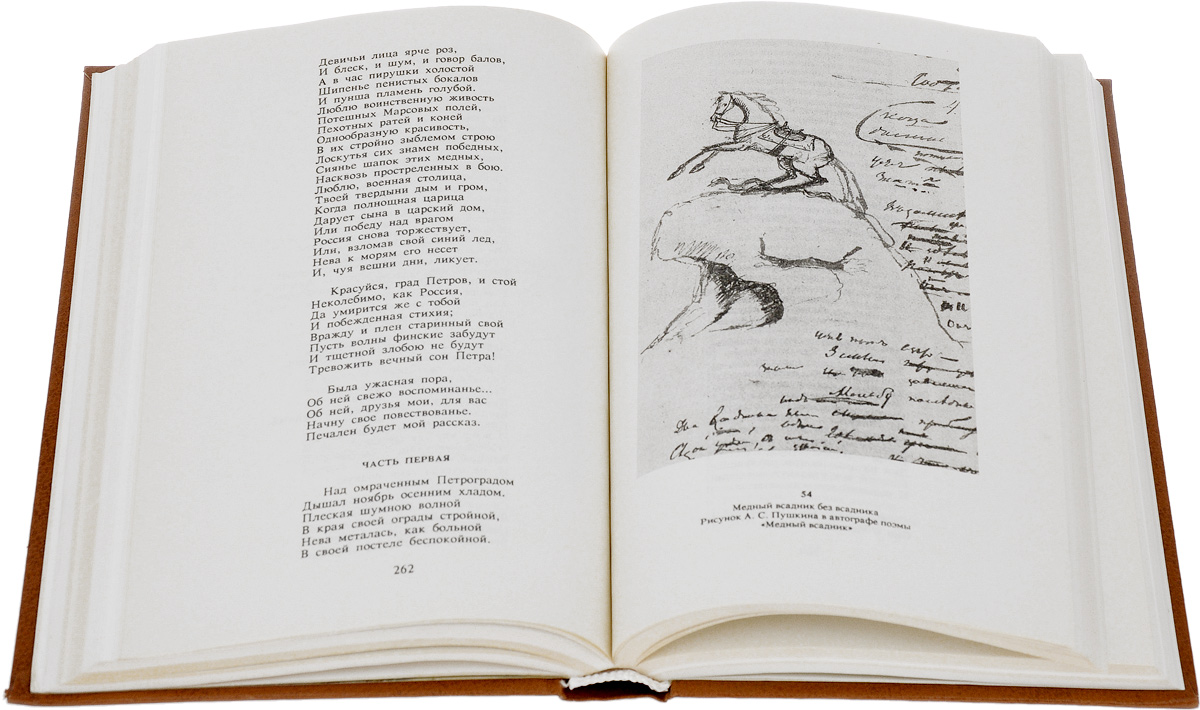 Девичьи лица ярче роз,
И блеск, и шум, и говор балов,
А в час пирушки холостой
Шипенье пенистых бокалов
И пунша пламень голубой.
Люблю воинственную живость
Потешных Марсовых полей,
Пехотных ратей и коней
Однообразную красивость,
В их стройно зыблемом строю
Лоскутья сих знамен победных,
Сиянье шапок этих медных,
Насквозь простреленных в бою.
Люблю, военная столица,
Твоей твердыни дым и гром,
Когда полнощная царица
Дарует сына в царский дом,
Или победу над врагом
Россия снова торжествует,
Или, взломав свой синий лед,
Нева к морям его несет
И, чуя вешни дни, ликует.
Красуйся, град Петров, и стой
Неколебимо, как Россия,
Да умирится же с тобой
И побежденная стихия;
Вражду и плен старинный свой
Пусть волны финские забудут
И тщетной злобою не будут
Тревожить вечный сон Петра!
Была ужасная пора,
Об ней свежо воспоминанье...
Об ней, друзья мои, для вас
Начну свое повествованье.
Печален будет мой рассказ.
ЧАСТЬ ПЕРВАЯ
Над омраченным Петроградом
Дышал ноябрь осенним хладом.
Плеская шумною волной
В края своей ограды стройной,
Нева металась, как больной
В своей постеле беспокойной.
262
54
Медный всадник без всадника
Рисунок А. С. Пушкина в автографе поэмы
«Медный всадник»